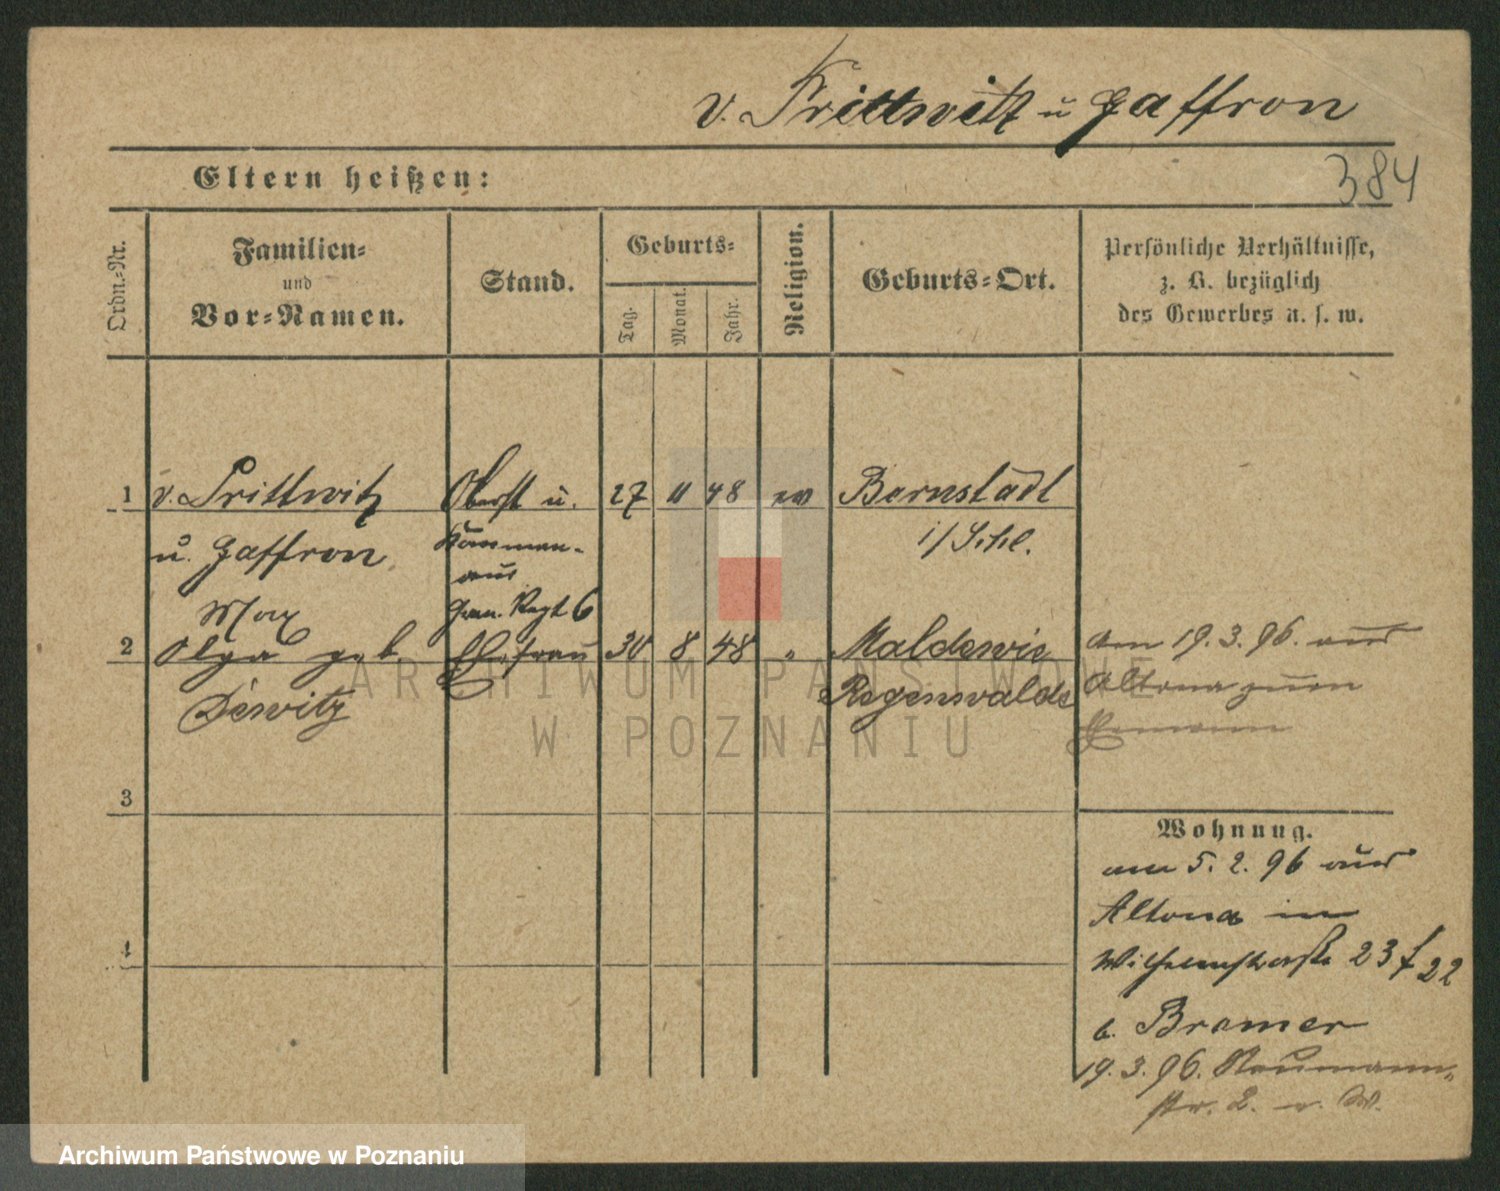 v. Prittwitz u Gaffron
Eltern heißen:
384
Ordn.-Nr.
Familien-
und
Vor-Namen.
Stand.
Geburts-
Tag.
Monat.
Jahr.
Religion.
Geburts-Ort.
Persönliche Verhältnisse,
z. B. bezüglich
des Gewerbes u. s. w.
1 v. Prittwitz Oberst u. 27 11 48 ev Bernstadt
u. Gaffron i/Schl.
Max Gren. Regt 6
2 Olga geb Ehefrau 30 8 48 " Maldewin
Dewitz Regenwalde
am 19.3.96. aus
Altona zum
Ehemann
3
4
Wohnung.
am 5. 2. 96 aus
Altona in
Wilhelmstraße 23 f 22
b. Bramer
19.3.96. Naumann-
str. 2.
ARCHIWUM PAŃSTWOWE
W POZNANIU
Archiwum Państwowe w Poznaniu